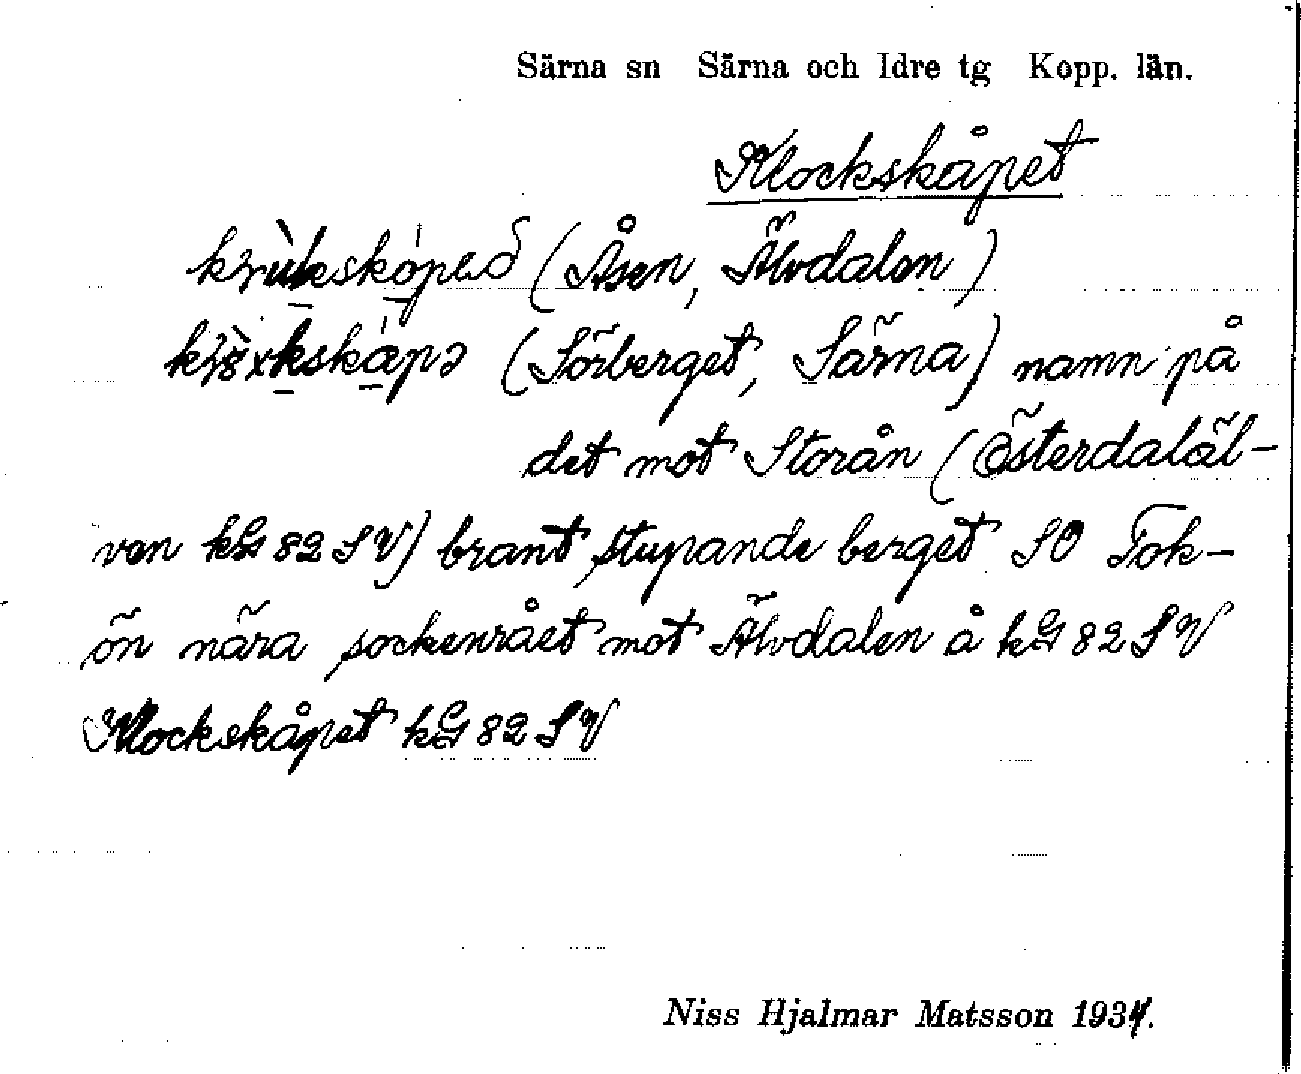 Särna sn Särna och Idre tg Kopp. län.
Klockskåpet
(Åsen, Älvdalen)
(Sörberget, Särna) namn på
det mot Storån (Österdaläl-
ven kG 82 SV) brant stupande berget SO Tok-
ön nära sockenrået mot Älvdalen å kG 82 SV
Klockskåpet kG 82 SV
Niss Hjalmar Matsson 1934.